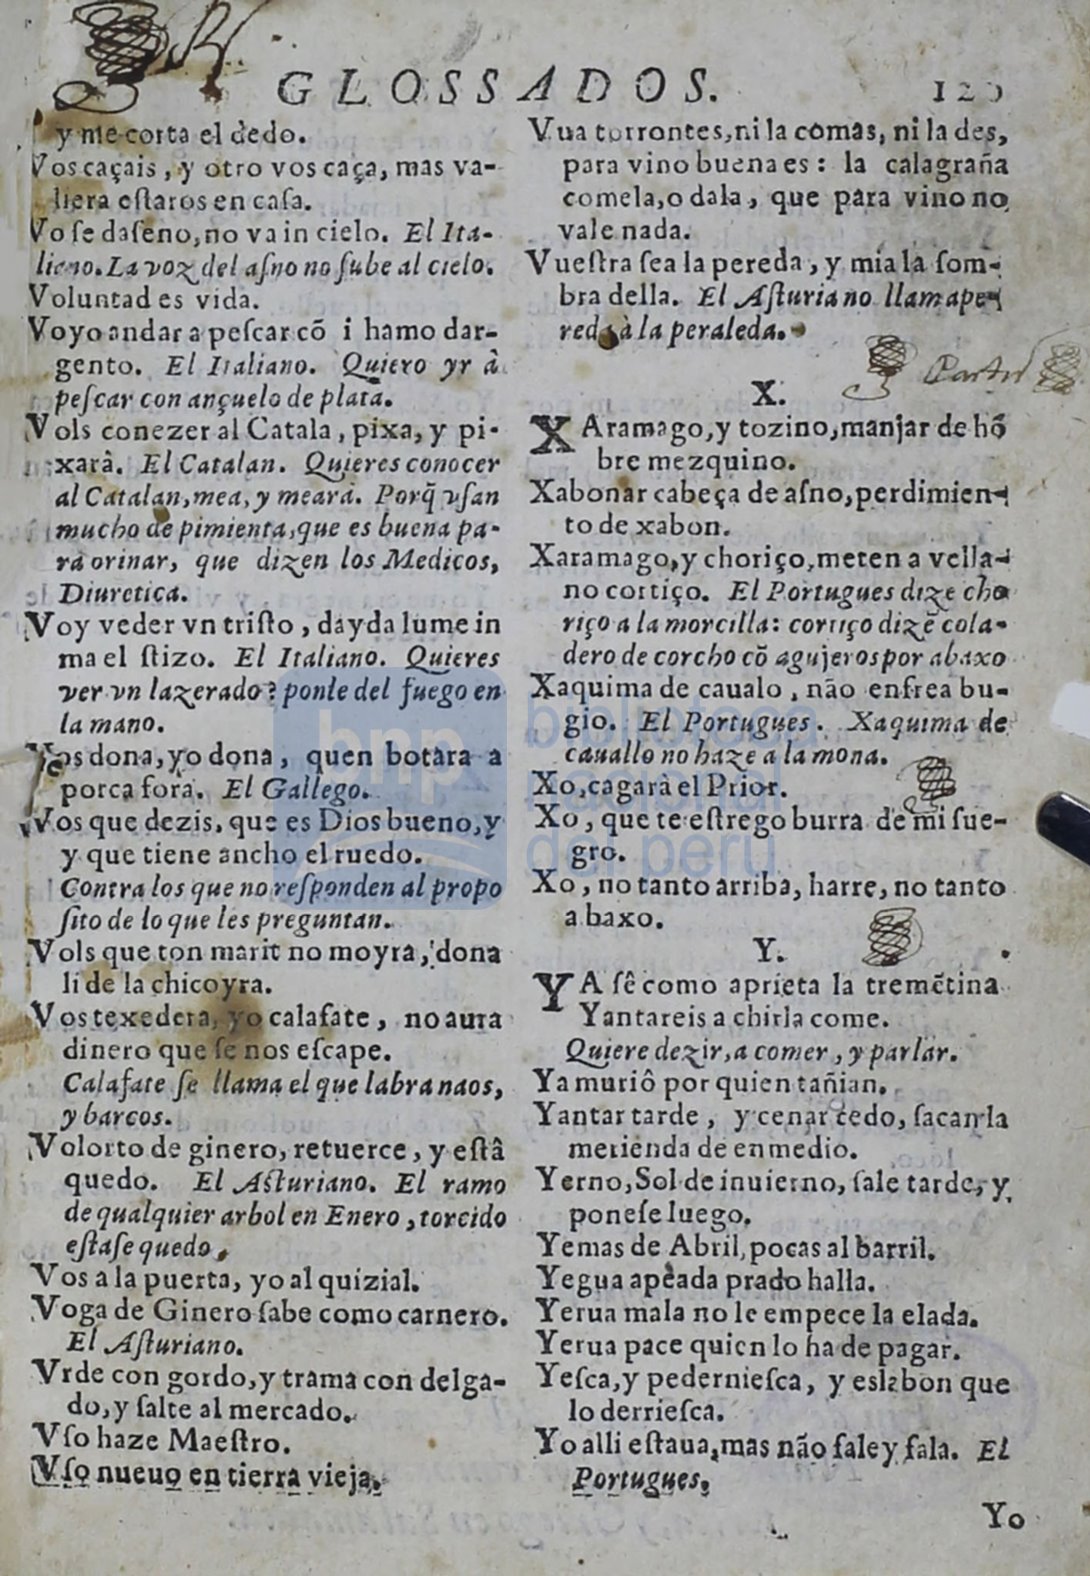 GLOSSADOS.
y me corta el dedo.
Vos caçais, y otro vos caça, mas va-
liera eſtaros en caſa.
Vo ſe daſeno, no va in cielo. El Ita-
liano. La voz del aſno no ſube al cielo.
Voluntad es vida.
Voyo andar a peſcar cõ i hamo dar-
gento. El Italiano. Quiero yr à
peſcar con ançuelo de plata.
Vols conezer al Catala, pixa, y pi-
xarà. El Catalan. Quieres conocer
al Catalan, mea, y mearà. Porq̃ vſan
mucho de pimienta, que es buena pa-
ra orinar, que dizen los Medicos,
Diuretica.
Voy veder vn triſto, dayda lume in
ma el ſtizo. El Italiano. Quieres
ver vn lazerado? ponle del fuego en
la mano.
Vos dona, yo dona, quen botara a
porca fora. El Gallego.
Vos que dezis, que es Dios bueno, y
y que tiene ancho el ruedo.
Contra los que no reſponden al propo
ſito de lo que les preguntan.
Vols que ton marit no moyra, dona
li de la chicoyra.
Vos texedera, yo calafate, no aura
dinero que ſe nos eſcape.
Calafate ſe llama el que labra naos,
y barcos.
Volorto de ginero, retuerce, y eſtâ
quedo. El Aſturiano. El ramo
de qualquier arbol en Enero, torcido
eſtaſe quedo.
Vos a la puerta, yo al quizial.
Voga de Ginero ſabe como carnero.
El Aſturiano.
Vrde con gordo, y trama con delga-
do, y ſalte al mercado.
Vſo haze Maeſtro.
Vſo nueuo en tierra vieja.
Vua torrontes, ni la comas, ni la des,
para vino buena es: la calagraña
comela, o dala, que para vino no
vale nada.
Vueſtra ſea la pereda, y mia la ſom-
bra della. El Aſturiano llama pe-
reda à la peraleda.
X.
XAramago, y tozino, manjar de hõ
bre mezquino.
Xabonar cabeça de aſno, perdimien-
to de xabon.
Xaramago, y choriço, meten a vella-
no cortiço. El Portugues dize cho
riço a la morcilla: cortiço dizẽ cola-
dero de corcho cõ agujeros por abaxo
Xaquima de caualo, não enfrea bu-
gio. El Portugues. Xaquima de
cauallo no haze a la mona.
Xo, cagarà el Prior.
Xo, que te eſtrego burra de mi ſue-
gro.
Xo, no tanto arriba, harre, no tanto
abaxo.
Y.
YA ſê como aprieta la tremẽtina
Yantareis a chirla come.
Quiere dezir, a comer, y parlar.
Ya muriô por quien tañian.
Yantar tarde, y cenar cedo, ſacan la
merienda de en medio.
Yerno, Sol de inuierno, ſale tarde, y
poneſe luego.
Yemas de Abril, pocas al barril.
Yegua apeada prado halla.
Yerua mala no le empece la elada.
Yerua pace quien lo ha de pagar.
Yeſca, y pedernieſca, y eslabon que
lo derrieſca.
Yo alli eſtaua, mas não faley fala. El
Portugues.
Yo
bnp biblioteca
nacional
del perú